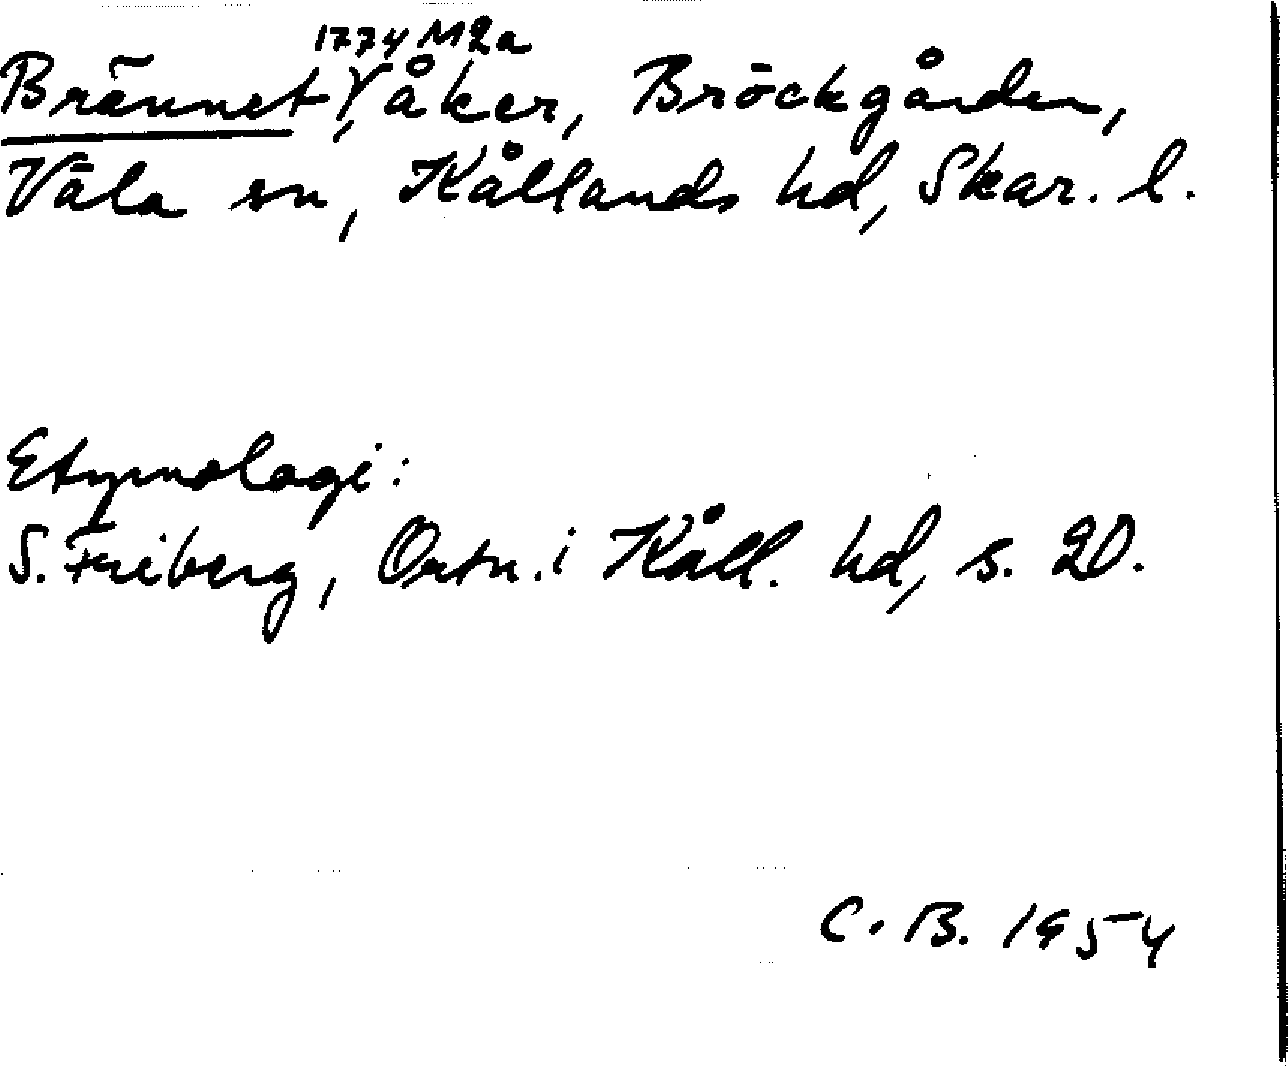 1774 M2a
Brännet, åker, Bröckgården,
Väla sn, Kållands hd, Skar. l.
Etymologi:
S. Friberg, Ortn. i Kåll. hd, s. 20.
C. B. 1954